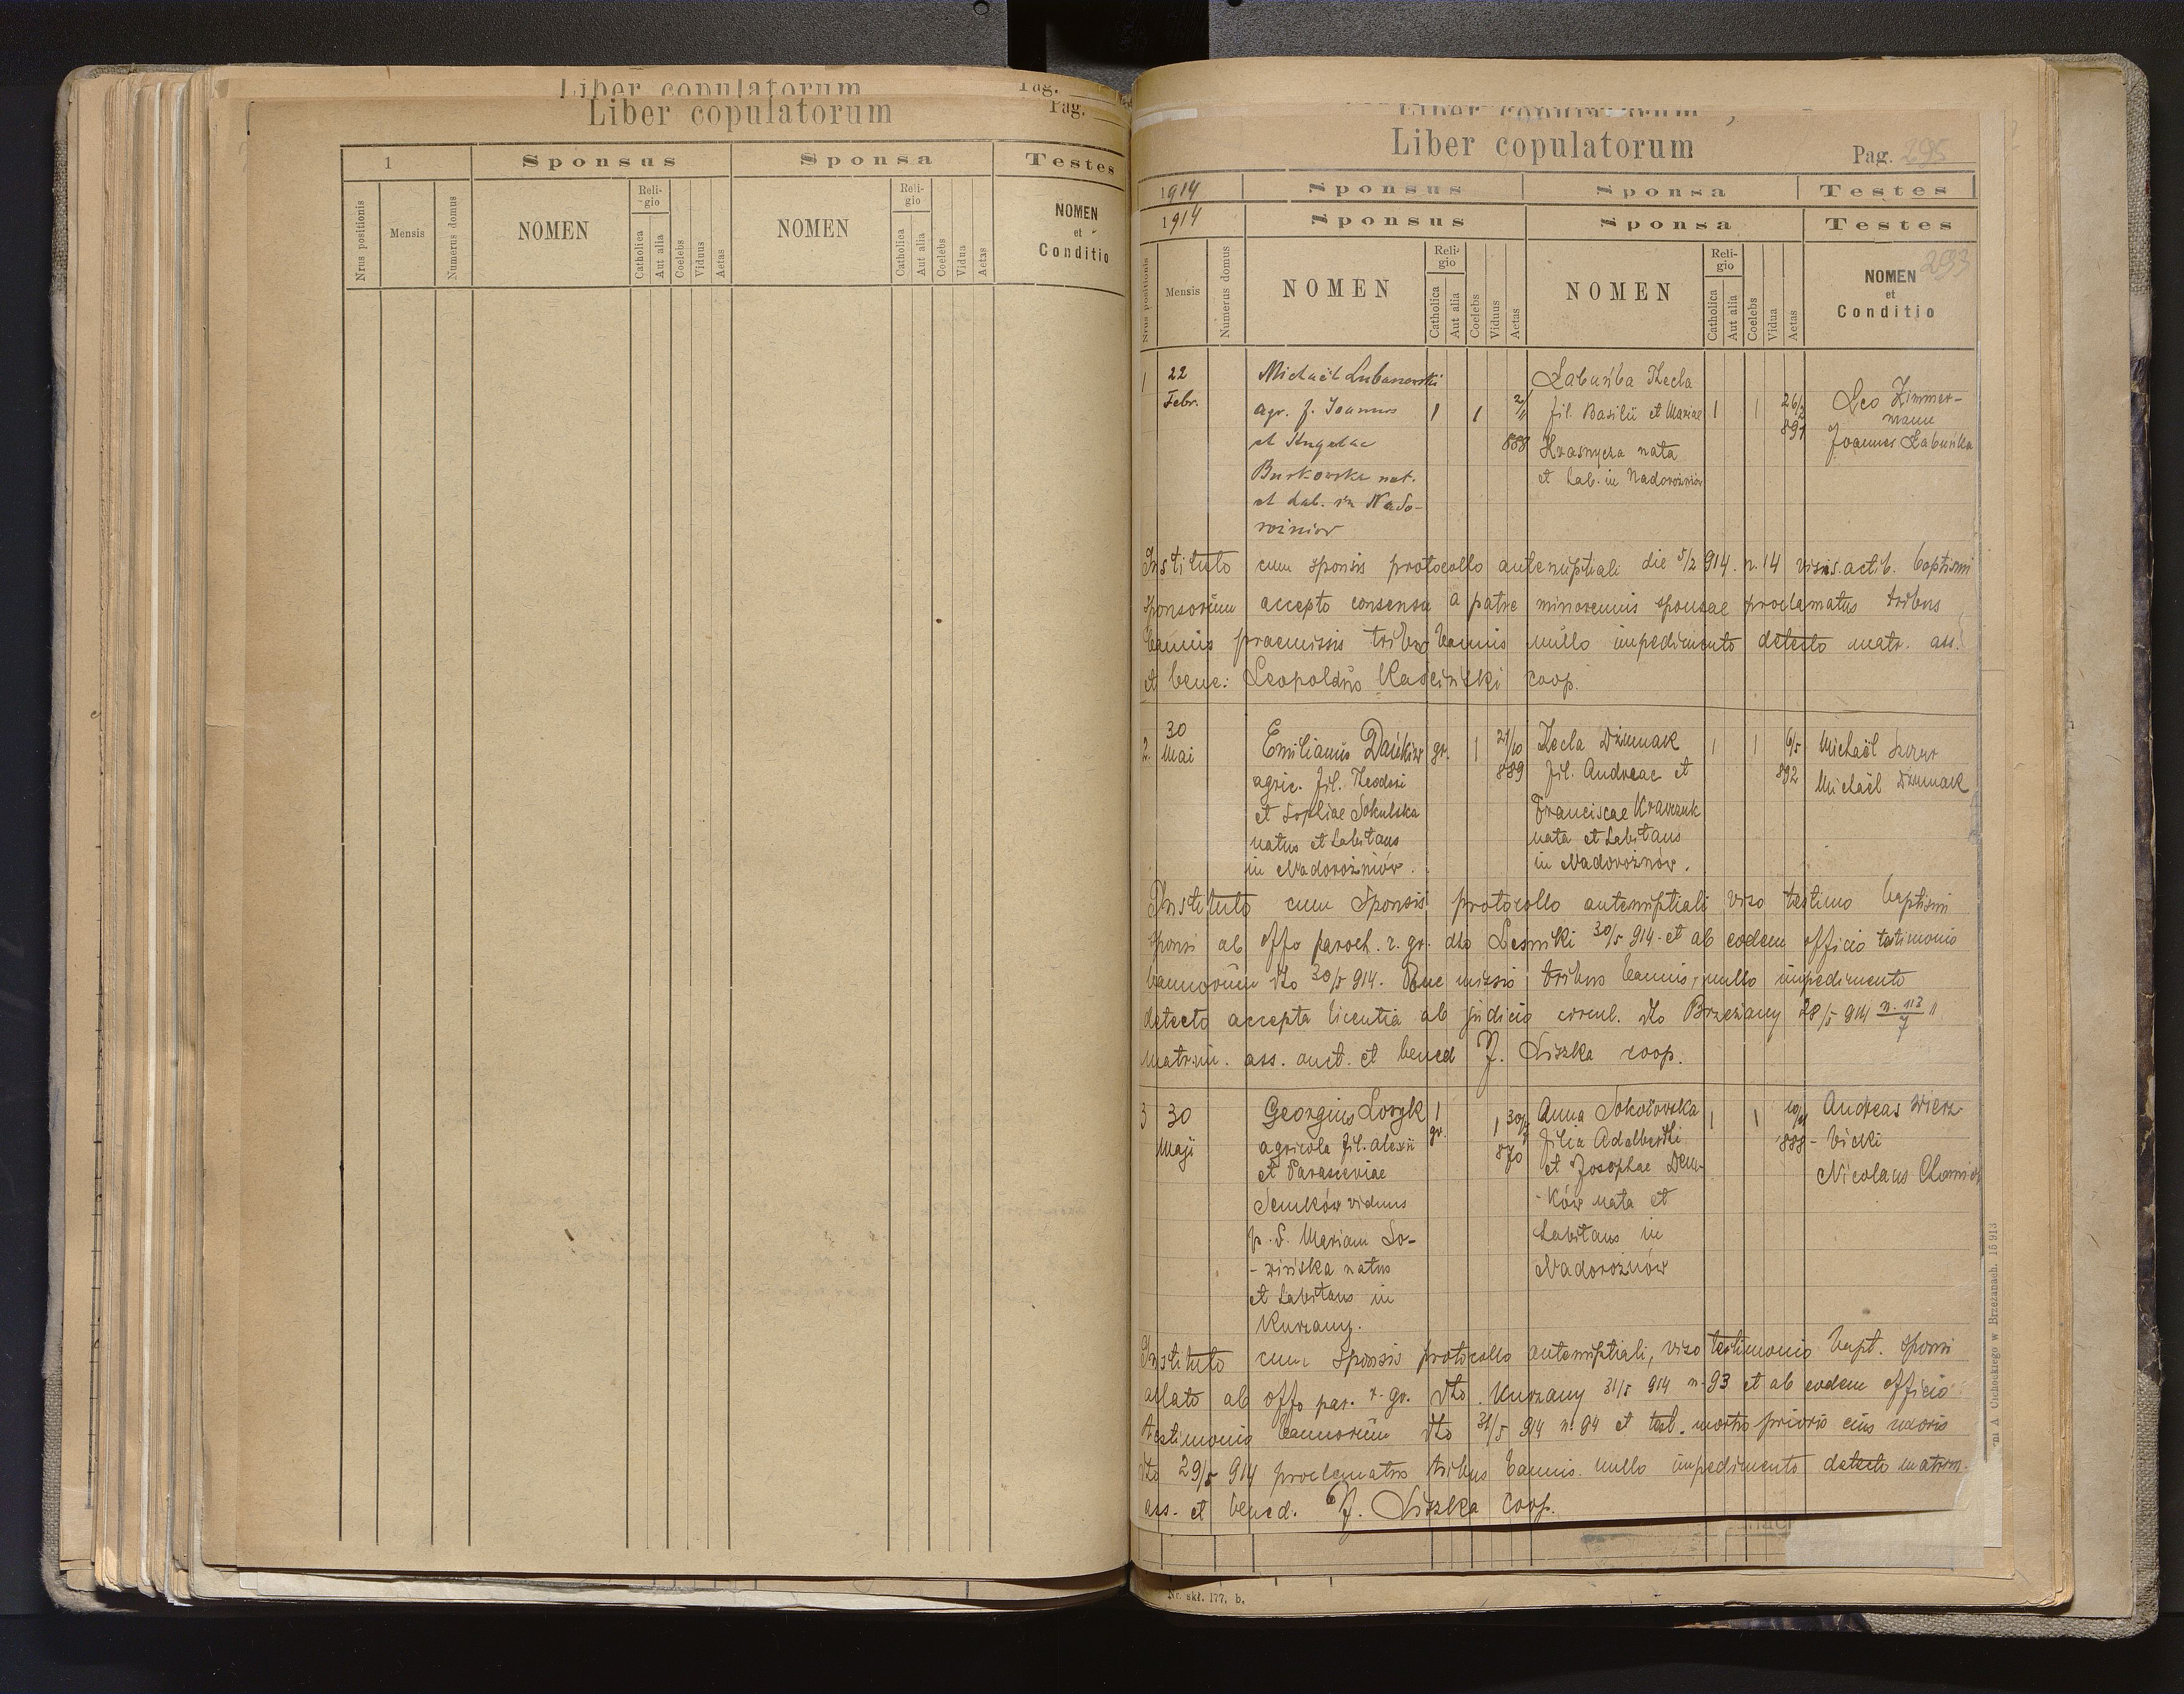 Liber copulatorum Pag.
Liber copulatorum Pag.
1 Sponsus Sponsa Testes
Nrus positionis Mensis Numerus domus NOMEN Religio Catholica Aut alia Coelebs Viduus Aetas NOMEN Religio Catholica Aut alia Coelebs Vidua Aetas NOMEN et Conditio
Liber copulatorum
Liber copulatorum Pag. 295
1914 Sponsus Sponsa Testes
1914 Sponsus Sponsa Testes
293
Nrus positionis Mensis Numerus domus NOMEN Religio Catholica Aut alia Coelebs Viduus Aetas NOMEN Religio Catholica Aut alia Coelebs Vidua Aetas NOMEN et Conditio
1 22 Febr.
Michaël Lubaszewski
agr. f. Joannis
et Angelae
Burkowska nat.
et hab. in Nado-
rożniów
1 1 2/11 888
Łabuńka Thecla
fil. Basilii et Mariae
Krasnycza nata
et hab. in Nadorożniów
1 1 26/2 891
Leo Zimmer-
mann
Joannes Łabuńka
Instituto cum sponsis protocollo antenuptiali die 5/2 914. n. 14 visis. actib. baptismi
sponsorum accepto consensu a patre minorennis sponsae proclamatus tribus
bannis praemissis tribus bannis nullo impedimento detecto matr. ass.
et bene: Leopoldus Kaściński coop.
2. 30 Mai
Emilianus Dańkiw
agric. fil. Theodori
et Sophiae Sokulska
natus et habitans
in Nadorożniów.
gr. 1 21/10 889
Thecla Dziumak
fil. Andreae et
Franciscae Krawczuk
nata et habitans
in Nadorożnów.
1 1 6/5 892
Michaël
Michaël Dziumak
Instituto cum Sponsis protocollo antenuptiali viso testimo baptismi
sponsi ab offo paroch. r. gr. dto Lesniki 30/5 914. et ab eodem officio testimonio
bannorum dto 30/5 914. missis tribus bannis, nullo impedimento
detecto accepta licentia ab judicio circul. dto Brzeżany 28/5 914 n. 113/7 "
matrim. ass. aust. et bened J. Liszka coop.
3 30 Maji
Georgius Loryk
agricola fil. Alexii
et Parasceviae
Semków viduus
p. d. Mariam Lo-
-zińska natus
et habitans in
Kurzany.
1 gr. 1 30/4 870
Anna Sokołowska
filia Adalberthi
et Josephae Dem-
-ków nata et
habitans in
Nadorożnów
1 1 10/11 888
Andreas Wierz-
-bicki
Nicolaus
Instituto cum Sponsis protocollo antenuptiali, viso testimonio bapt. sponsi
allato ab offo par. r. gr. dto. Kurzany 31/5 914 n. 93 et ab eodem officio
testimonio bannorum dto 31/5 914 n. 94 et test. mortis prioris eius uxoris
dto 29/5 914 proclamatis tribus bannis. nullo impedimento detecto matrim.
ass. et bened. J. Liszka coop.
A. Cichockiego w Brzeżanach. 15 913
Nr. skł. 177. b.